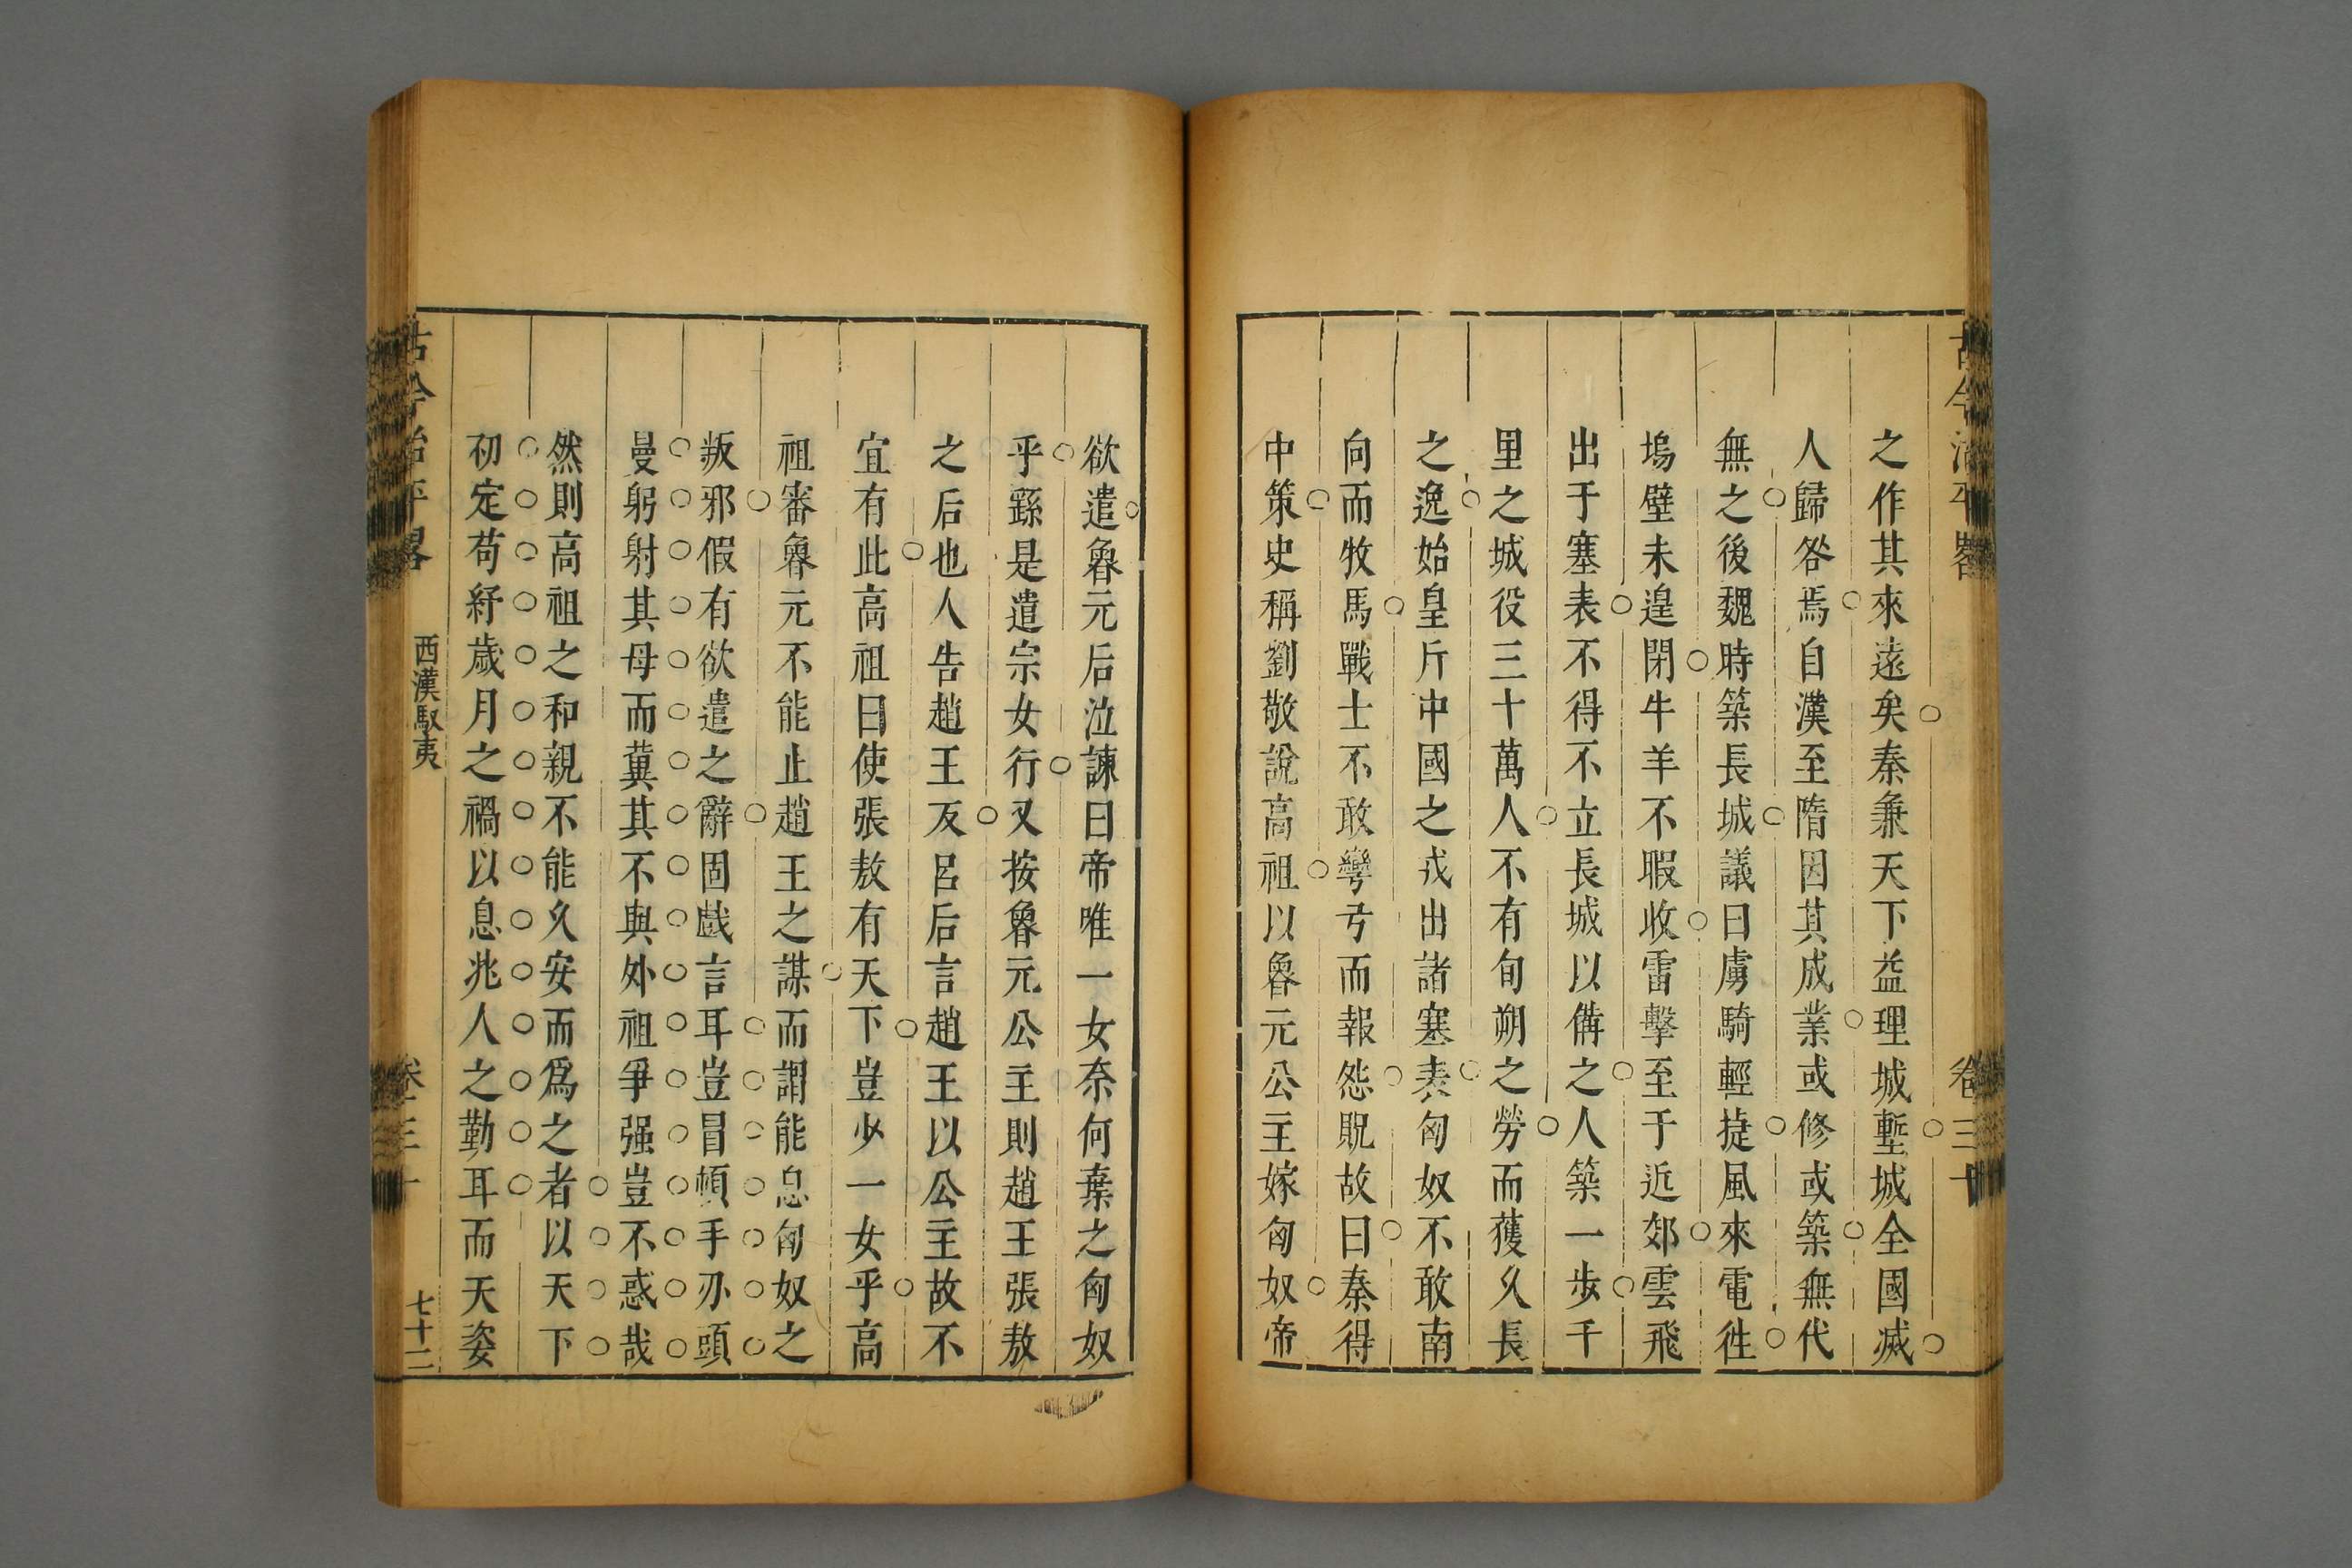 古今治平畧
卷三十
之作其來遠矣秦兼天下益理城塹城全國滅
人歸咎焉自漢至隋因其成業或修或築無代
無之後魏時築長城議曰虜騎輕捷風來電徃
塢壁未遑閉牛羊不暇收雷擊至于近郊雲飛
出于塞表不得不立長城以備之人築一步千
里之城役三十萬人不有旬朔之勞而獲久長
之逸始皇斥中國之戎出諸塞表匈奴不敢南
向而牧馬戰士不敢彎弓而報怨貺故曰秦得
中策史稱劉敬說高祖以魯元公主嫁匈奴帝
欲遣魯元后泣諫曰帝唯一女奈何棄之匈奴
乎繇是遣宗女行又按魯元公主則趙王張敖
之后也人告趙王反呂后言趙王以公主故不
宜有此高祖曰使張敖有天下豈少一女乎高
祖審魯元不能止趙王之謀而謂能息匈奴之
叛邪假有欲遣之辭固戲言耳豈冒頓手刃頭
曼躬射其母而冀其不與外祖爭强豈不惑哉
然則高祖之和親不能久安而爲之者以天下
初定苟紓歲月之禍以息兆人之勤耳而天姿
古今治平畧
西漢馭夷
卷三十
七十二